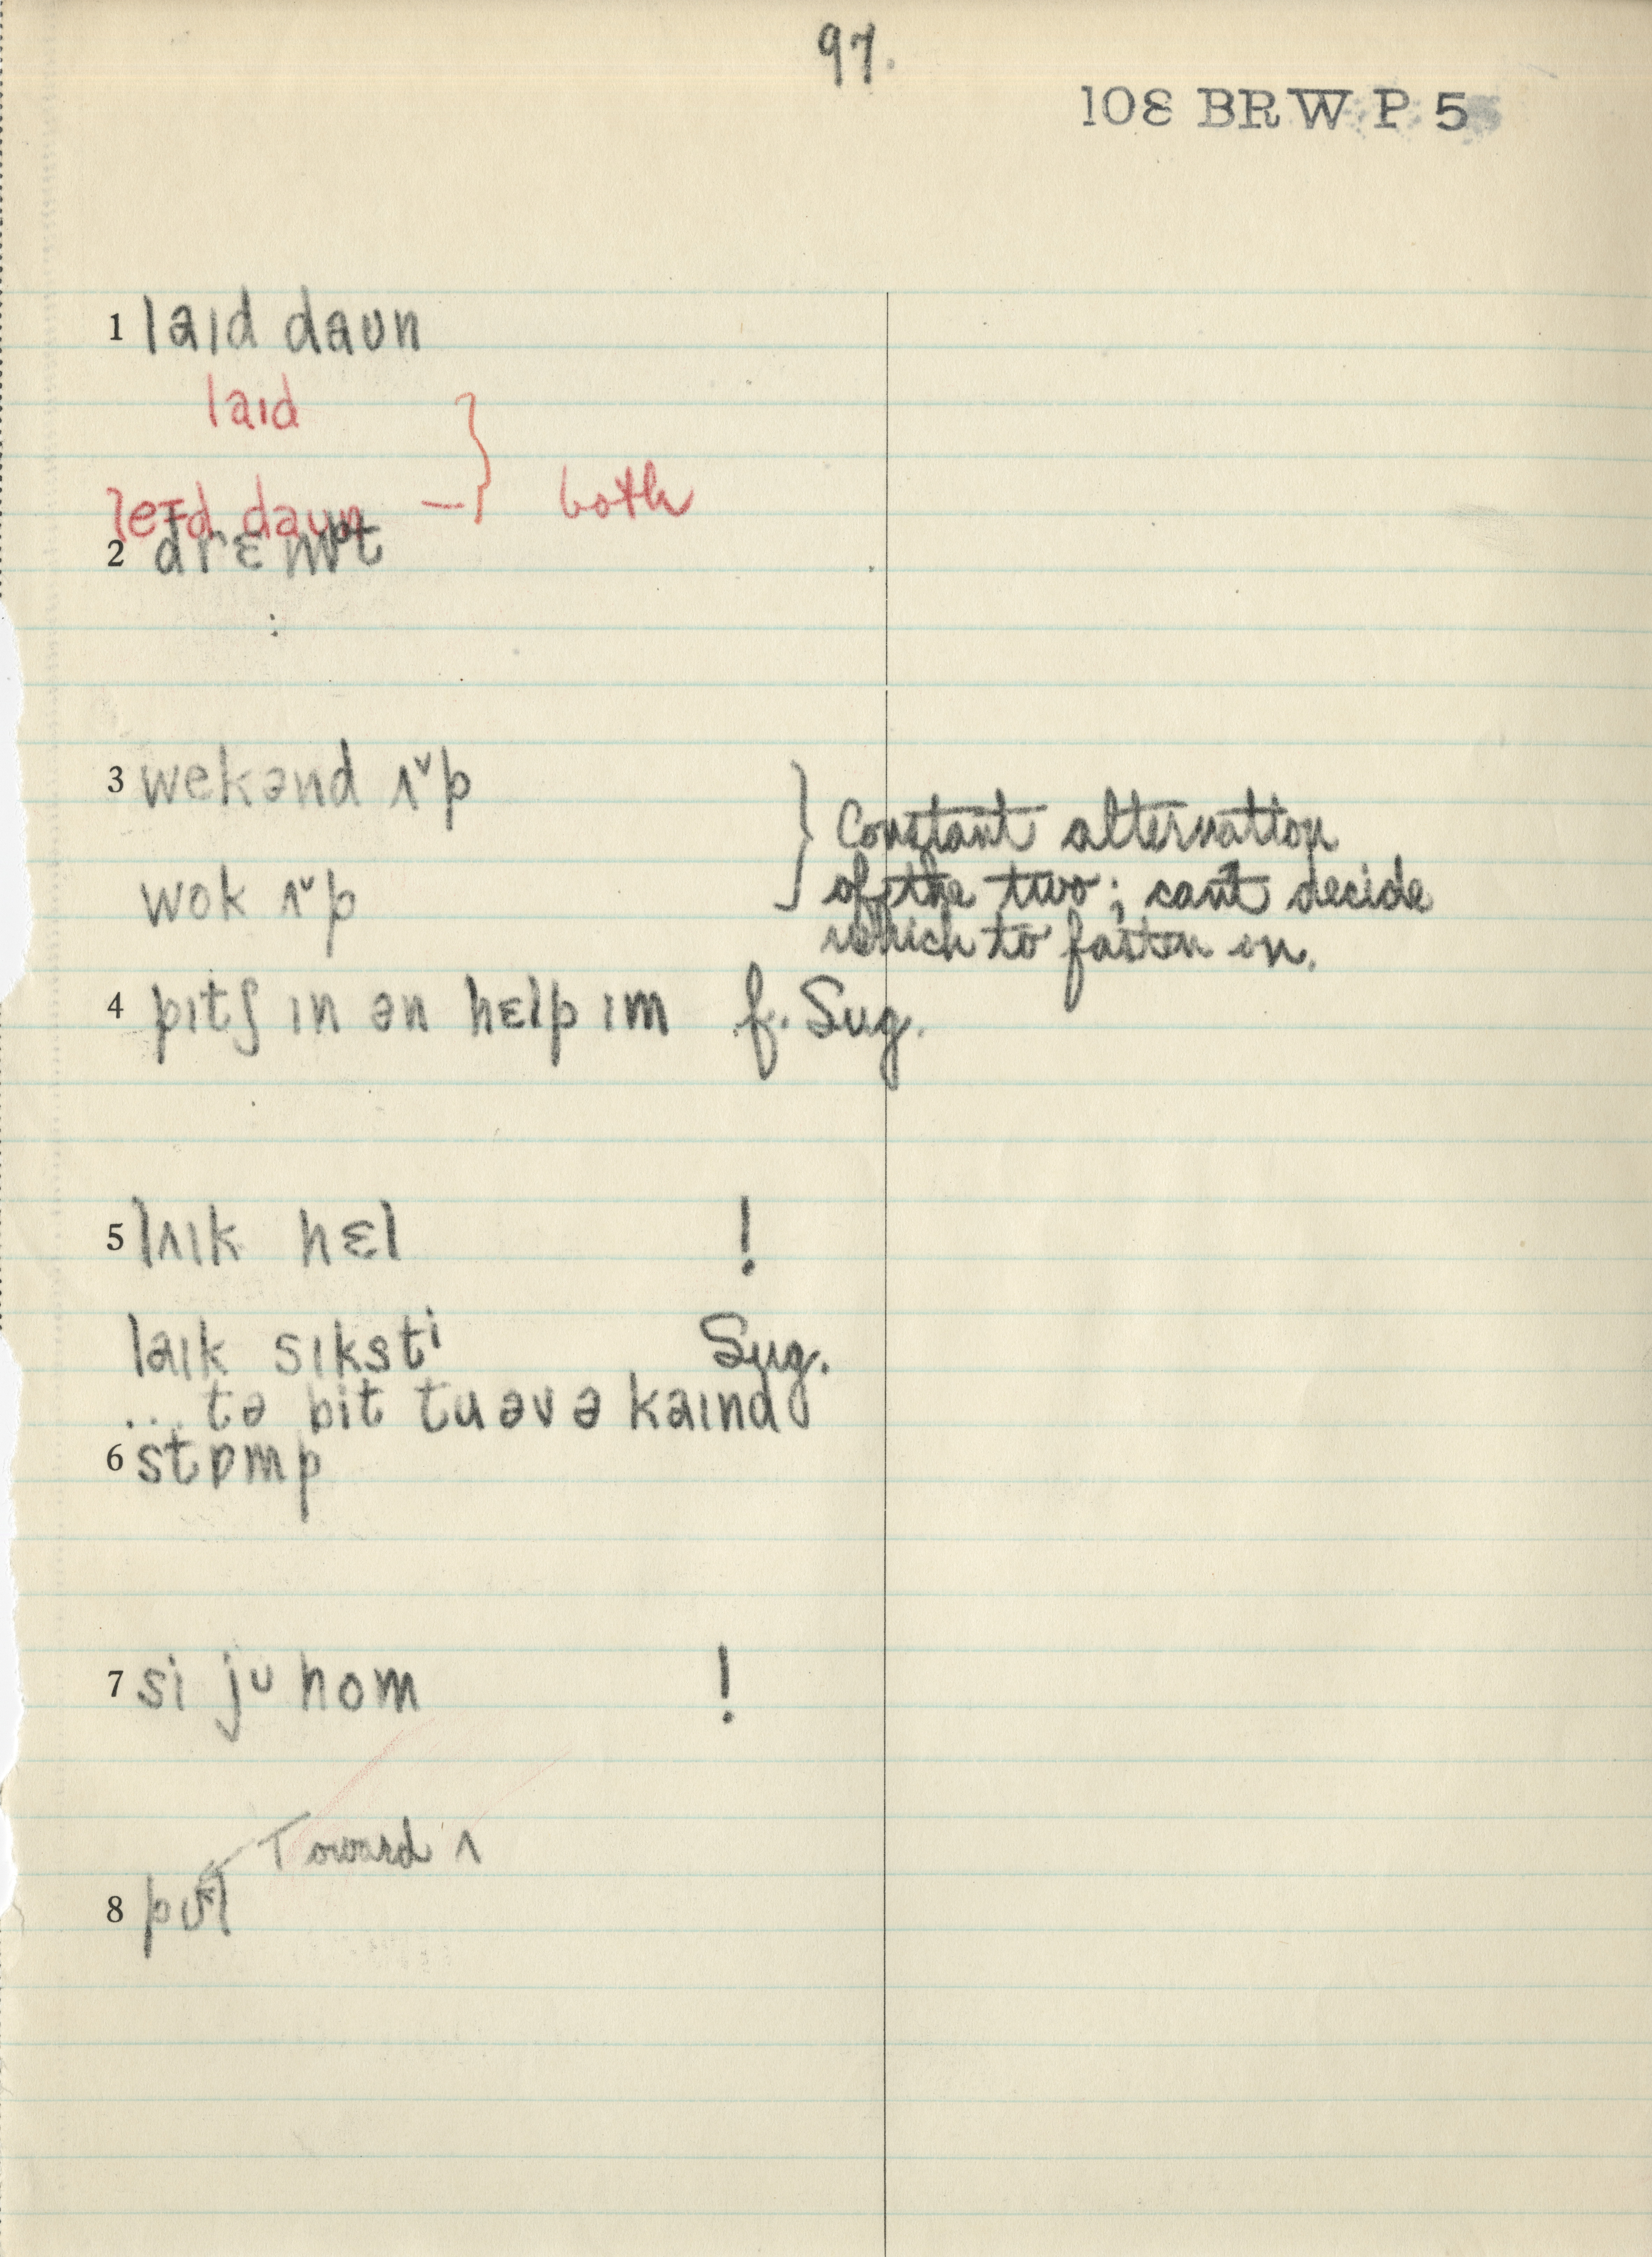 97.
108 BRW P 5
1 laɪd daʊn
laɪd
leɪd daʊn — } both
2 drɛmpt
3 wekənd ʌˇp
wok ʌˇp
} Constant alternation
of the two; can't decide
which to fasten on.
4 pɪtʃ ɪn ən hɛlp ɪm f. Sug.
5 lʌɪk hɛl !
laɪk sɪkstⁱ Sug.
... tə bit tu əv ə kaɪnd
6 stɒmp
7 si jᵁ hom !
Toward ʌ
8